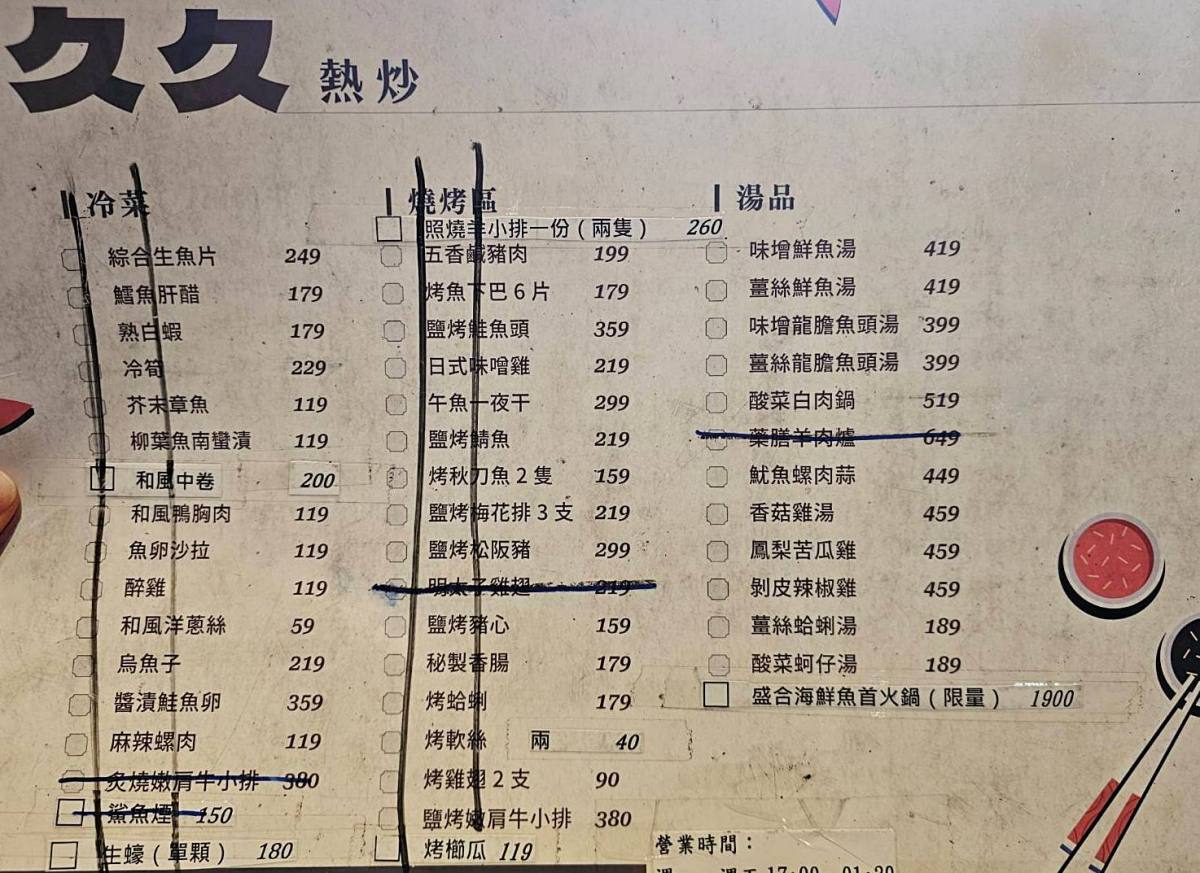 久久 熱炒
冷菜
綜合生魚片 249
鱈魚肝醋 179
熟白蝦 179
冷筍 229
芥末章魚 119
柳葉魚南蠻漬 119
和風中卷 200
和風鴨胸肉 119
魚卵沙拉 119
醉雞 119
和風洋蔥絲 59
烏魚子 219
醬漬鮭魚卵 359
麻辣螺肉 119
炙燒嫩肩牛小排 380
鯊魚煙 150
生蠔（單顆） 180
燒烤區
照燒羊小排一份（兩隻） 260
五香鹹豬肉 199
烤魚下巴6片 179
鹽烤鮭魚頭 359
日式味噌雞 219
午魚一夜干 299
鹽烤鯖魚 219
烤秋刀魚2隻 159
鹽烤梅花排3支 219
鹽烤松阪豬 299
明太子雞翅 219
鹽烤豬心 159
秘製香腸 179
烤蛤蜊 179
烤軟絲 兩 40
烤雞翅2支 90
鹽烤嫩肩牛小排 380
烤櫛瓜 119
湯品
味增鮮魚湯 419
薑絲鮮魚湯 419
味增龍膽魚頭湯 399
薑絲龍膽魚頭湯 399
酸菜白肉鍋 519
藥膳羊肉爐 649
魷魚螺肉蒜 449
香菇雞湯 459
鳳梨苦瓜雞 459
剝皮辣椒雞 459
薑絲蛤蜊湯 189
酸菜蚵仔湯 189
盛合海鮮魚首火鍋（限量） 1900
營業時間：